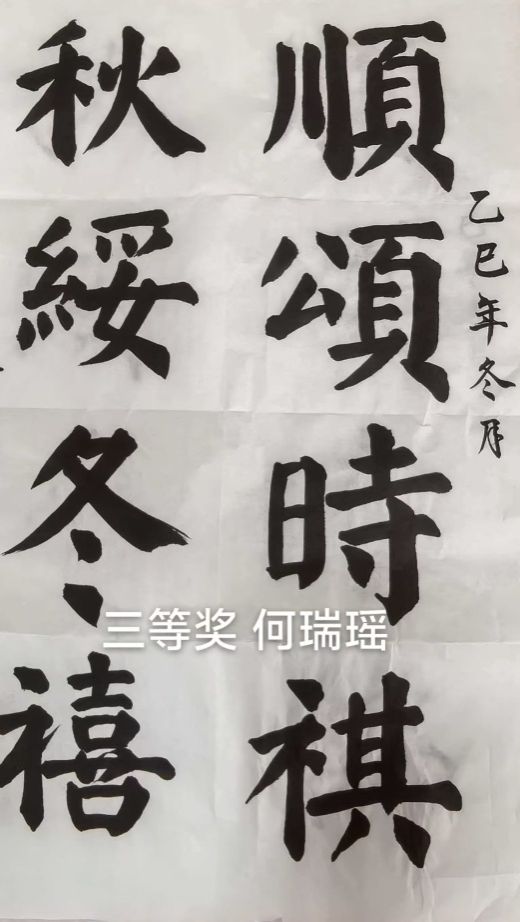 乙巳年冬月
順頌時祺
秋綏冬禧
三等奖 何瑞瑶